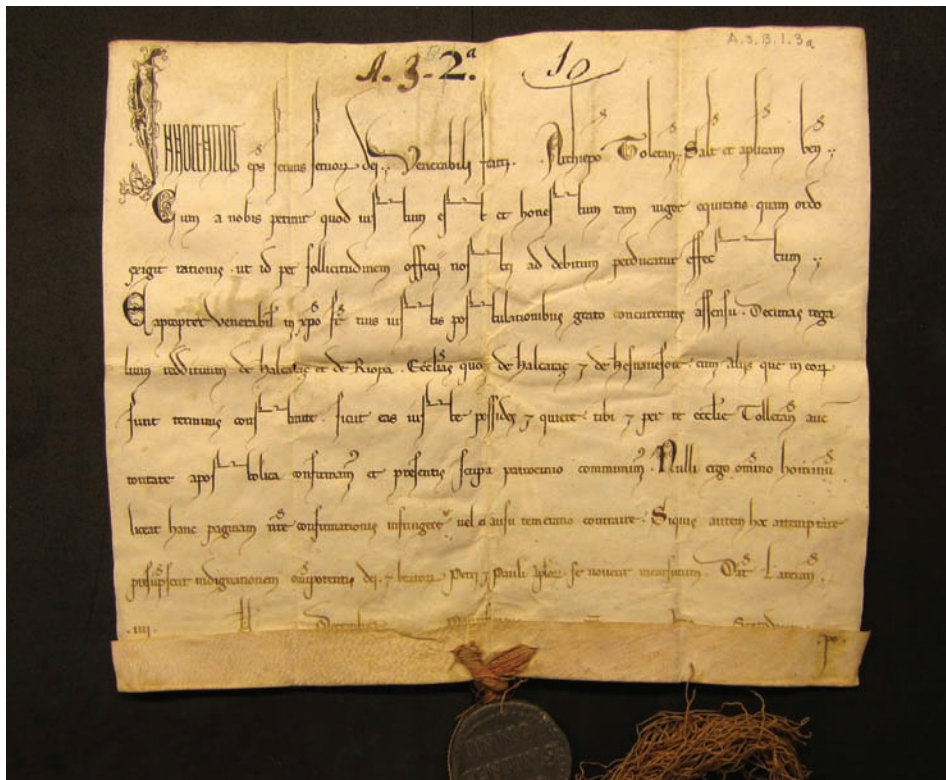 A.3.B.1.3a
A. 3. 2.ª 10
INNOCENTIUS eps servus servoꝝ dei. Venerabili fratri. Archiepo Toletan. Salt et aplicam ben.
Cum a nobis petitur quod iustum est et honestum tam vigor equitatis quam ordo
exigit rationis. ut id per sollicitudinem officii nostri ad debitum perducatur effectum.
Eapropter venerabił in xpo fr tuis iustis postulationibus grato concurrentes assensu. Decimas rega
lium reddituum de Halcaraz et de Riopa. Ecclias quoq de Halcaraz ⁊ de cum aliis que in eoꝝ
sunt terminis constitute. sicut eas iuste possides ⁊ quiete. tibi ⁊ per te ecclie Tolletan auc
toritate apostolica confirmam et presentis scripti patrocinio communim. Nulli ergo omino hominu
liceat hanc paginam nre confirmationis infringere. vel ei ausu temerario contraire. Siquis autem hoc attemptare
presupserit indignationem omipotentis dei. ⁊ beatoꝝ Petri ⁊ Pauli aploꝝ se noverit incursurum. Dat Lateran.
.iiii.
.po.